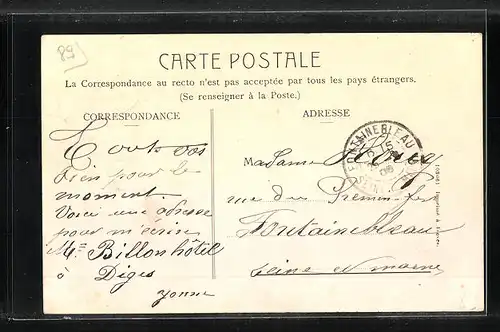 89
CARTE POSTALE
La Correspondance au recto n'est pas acceptée par tous les pays étrangers.
(Se renseigner à la Poste.)
CORRESPONDANCE
ADRESSE
Tout
bien pour le
moment.
Voici une adresse
pour m'écrire
Billon hôtel
à Diges
Yonne
FONTAINEBLEAU
SEINE
Madame
rue du
Fontainebleau
Seine et marne